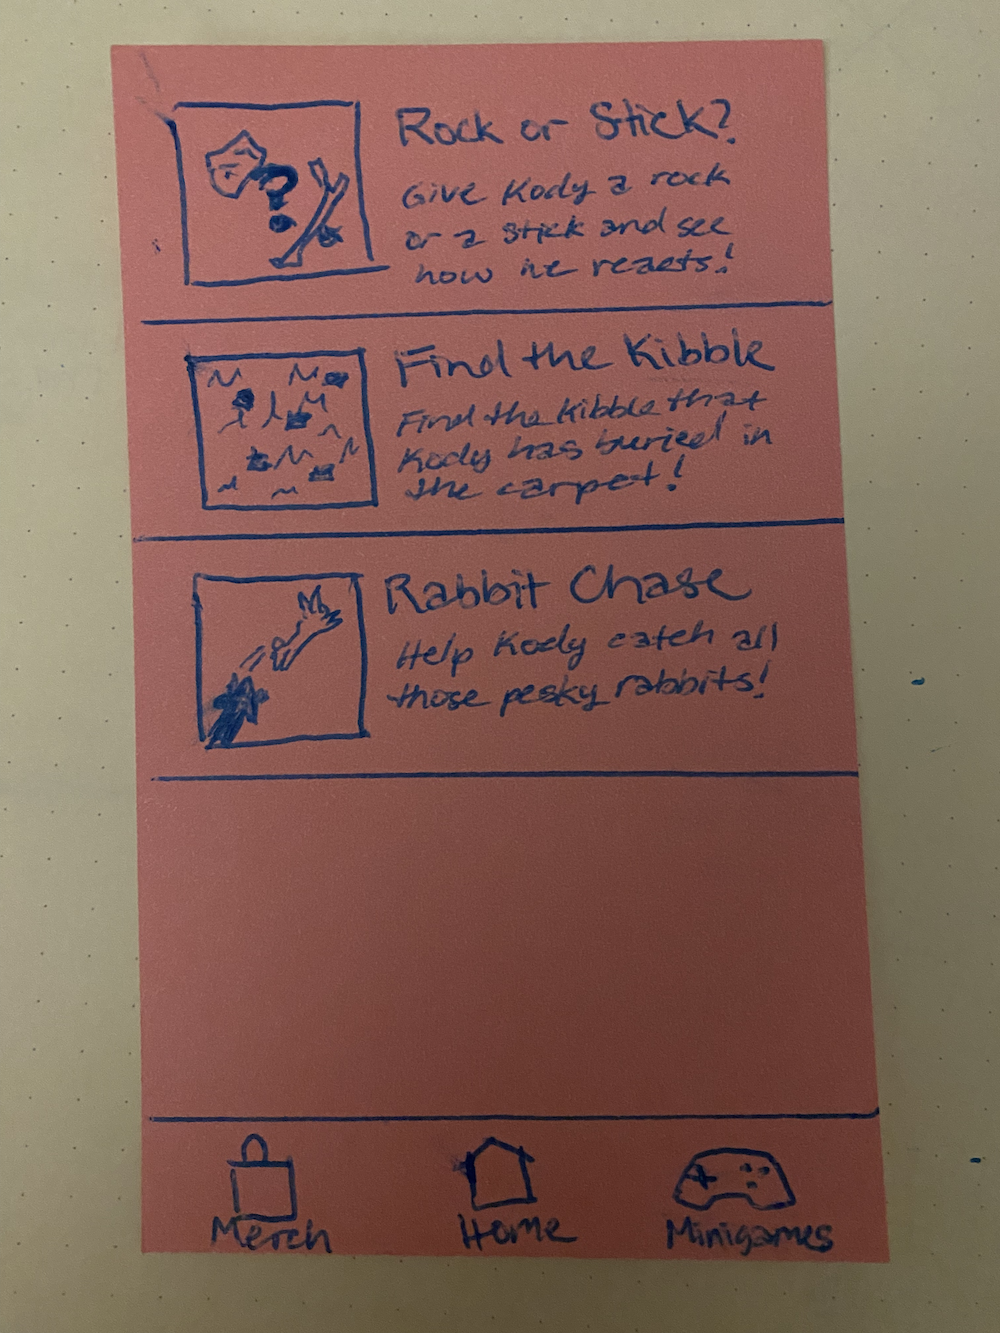 Rock or Stick?
Give Kody a rock
or a stick and see
how he reacts!
Find the Kibble
Find the kibble that
Kody has buried in
the carpet!
Rabbit Chase
Help Kody catch all
those pesky rabbits!
Merch
Home
Minigames